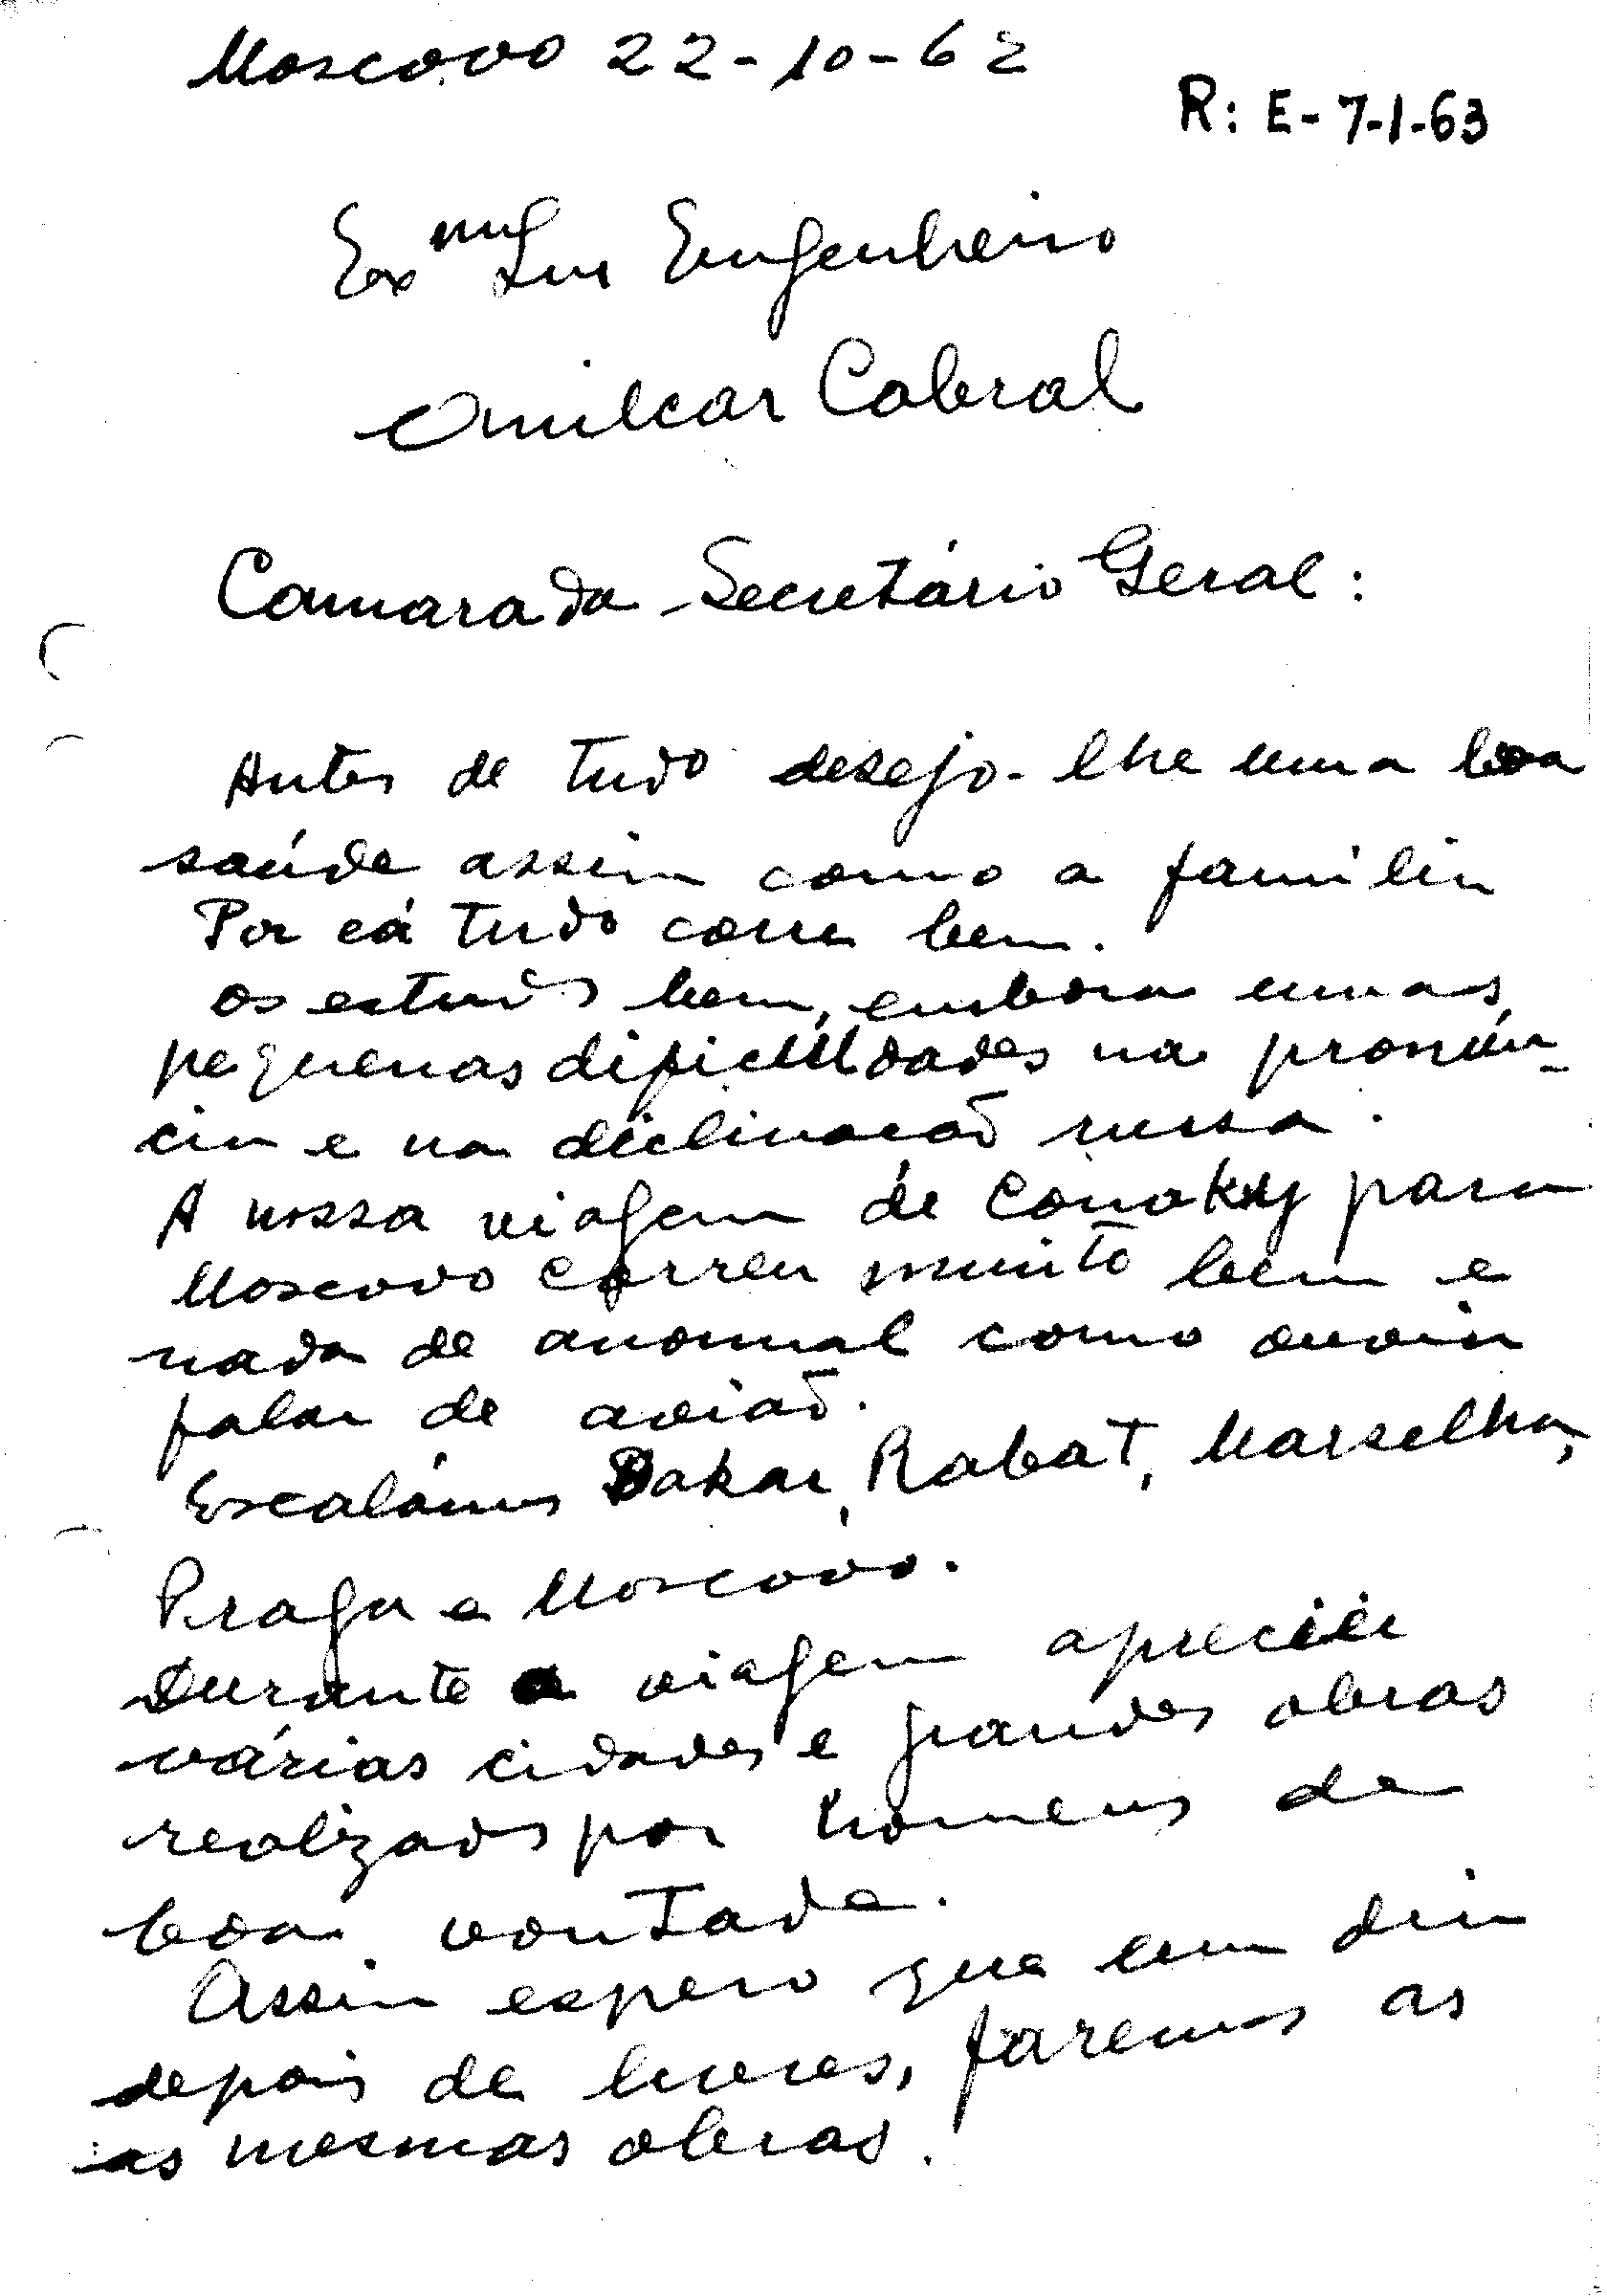 Moscovo 22-10-62
R: E- 7-1-63
Exmº Snr Engenheiro
Amilcar Cabral
Camarada Secretário Geral:
Antes de tudo desejo-lhe uma boa
saúde assim como a familia
Por cá tudo corre bem.
Os estudos bem, embora umas
pequenas dificuldades na pronún-
cia e na declinacaõ russa.
A nossa viagem de Conakry para
Moscovo correu muito bem e
nada de anormal como ouvia
falar de aviaõ.
Escalámos Dakar, Rabat, Marselha,
Praga e Moscovo.
Durante a viagem apreciei
várias cidades e grandes obras
realizados por homens de
boa vontade.
Assim espero que um dia
depois de livres, faremos as
as mesmas obras.